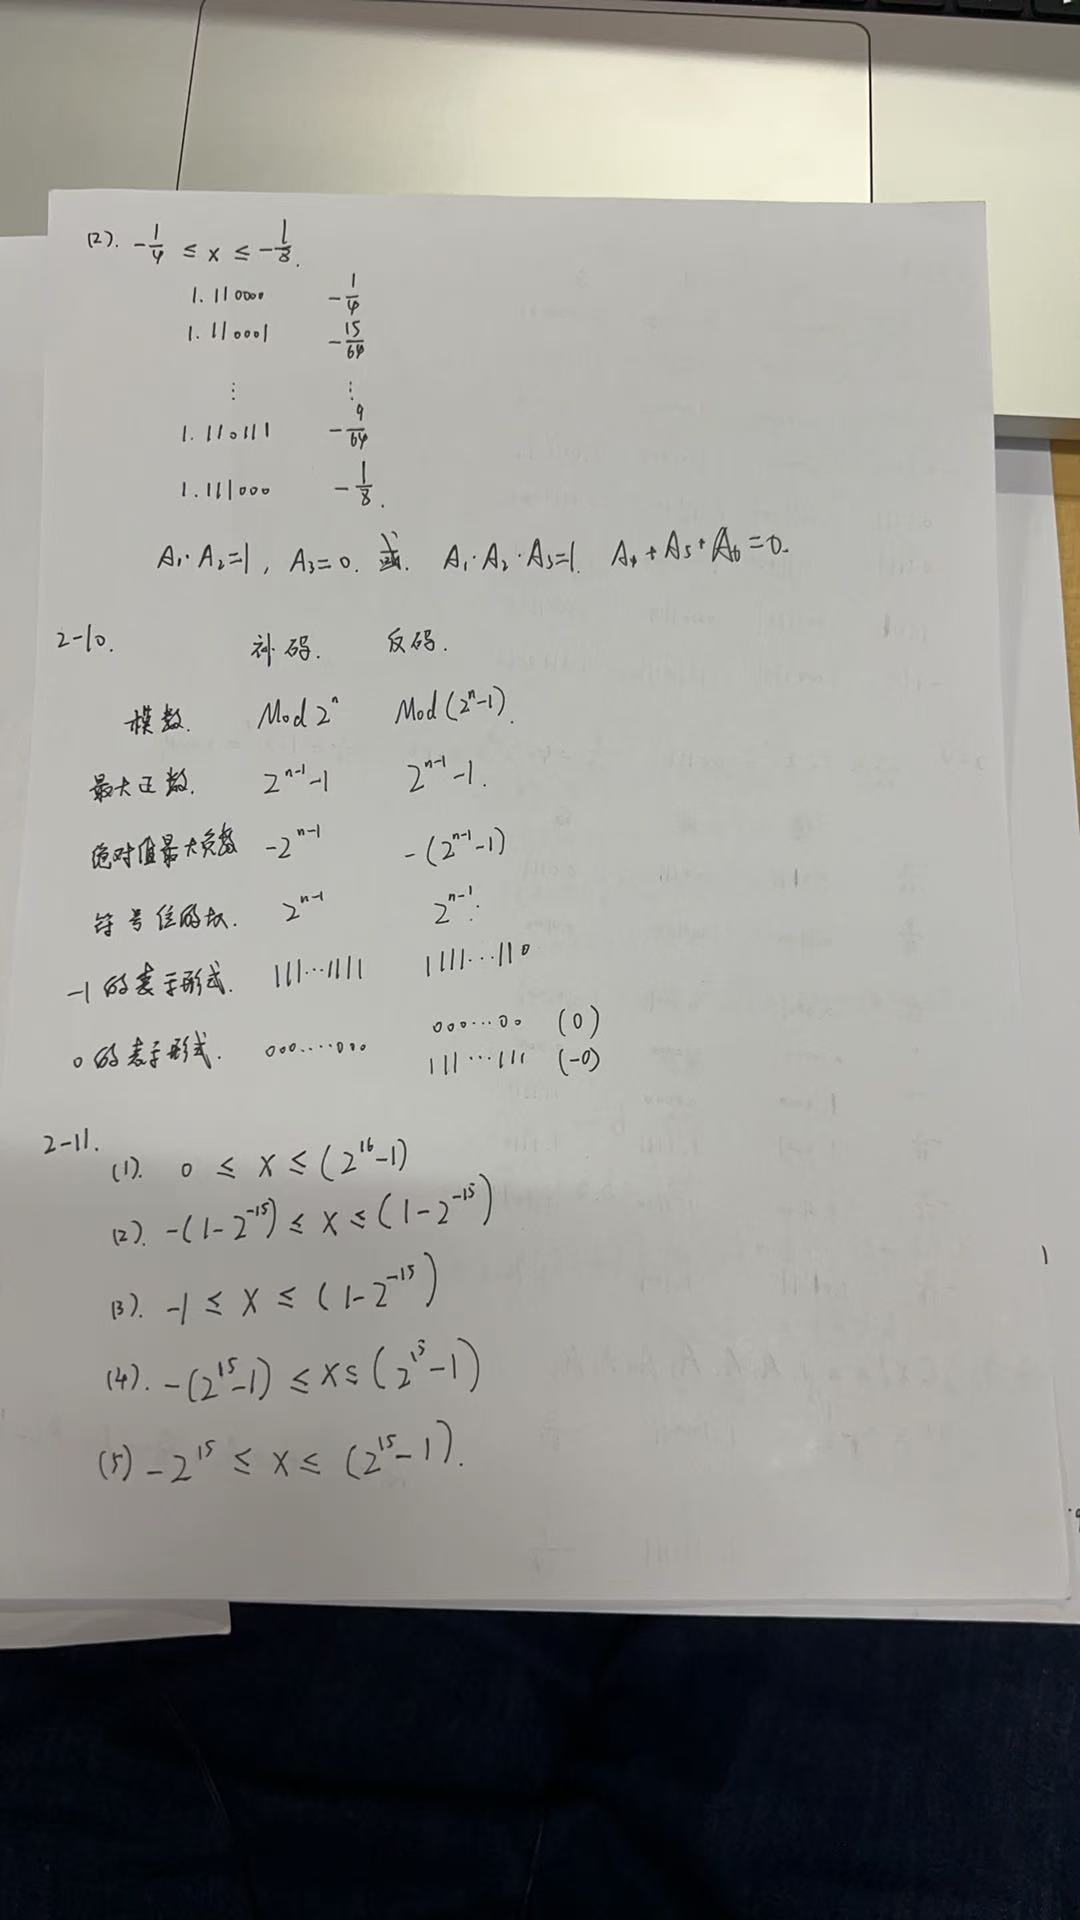 (2). -1/4 ≤ x ≤ -1/8.
1.110000 -1/4
1.110001 -15/64
⋮ ⋮
1.110111 -9/64
1.111000 -1/8.
A₁·A₂=1, A₃=0. 或. A₁·A₂·A₃=1. A₄+A₅+A₆=0.
2-10. 补码. 反码.
模数. Mod 2ⁿ Mod (2ⁿ-1).
最大正数. 2ⁿ⁻¹-1 2ⁿ⁻¹-1.
绝对值最大负数 -2ⁿ⁻¹ -(2ⁿ⁻¹-1)
符号位的权. 2ⁿ⁻¹ 2ⁿ⁻¹.
-1的表示形式. 111⋯1111 1111⋯110
0的表示形式. 000⋯⋯000 000⋯00 (0)
111⋯111 (-0)
2-11.
(1). 0 ≤ x ≤ (2¹⁶-1)
(2). -(1-2⁻¹⁵) ≤ x ≤ (1-2⁻¹⁵)
(3). -1 ≤ x ≤ (1-2⁻¹⁵)
(4). -(2¹⁵-1) ≤ x ≤ (2¹⁵-1)
(5) -2¹⁵ ≤ x ≤ (2¹⁵-1).